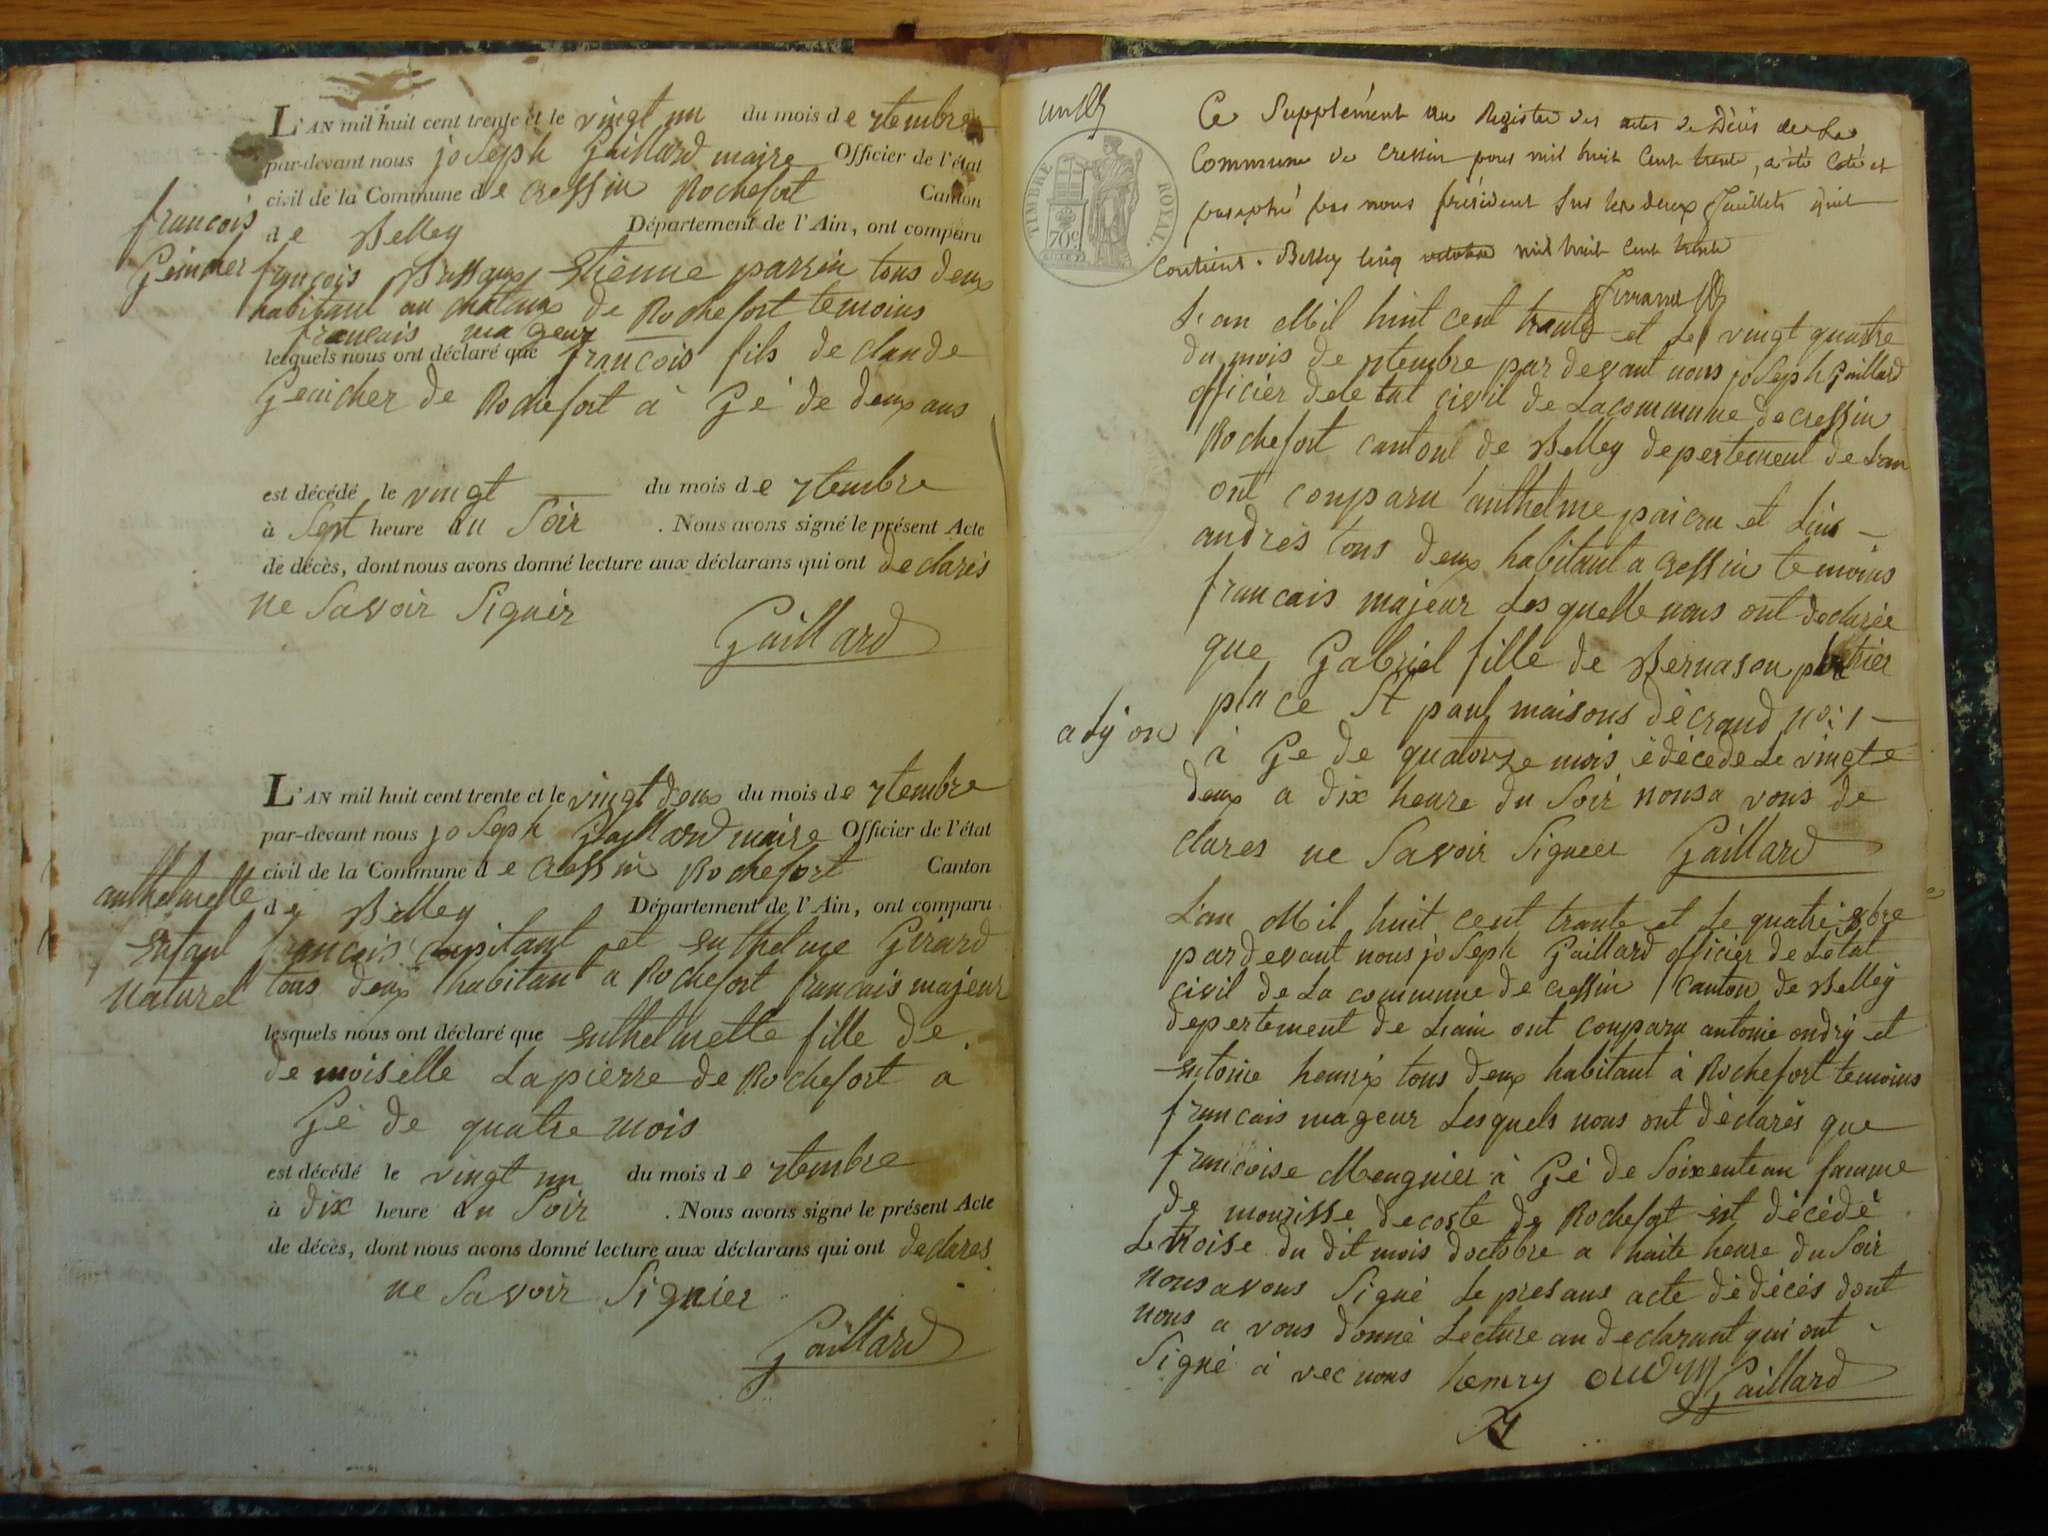 L'AN mil huit cent trente et le vingt un du mois de 7tembre
par-devant nous joseph Gaillard maire Officier de l'état
civil de la Commune de cressin Rochefort Canton
de Belley Département de l'Ain, ont comparu
françois
françois Etienne parrin tous deux
habitant au chataux de Rochefort temoins
francais mageur
lesquels nous ont déclaré que françois fils de claude
de Rochefort à Gé de deux ans
est décédé le vingt du mois de 7tembre
à Sept heure du Soir . Nous avons signé le présent Acte
de décès, dont nous avons donné lecture aux déclarans qui ont declarés
ne Savoir Signér
Gaillard
L'AN mil huit cent trente et le vingt deux du mois de 7tembre
par-devant nous joseph Gaillard maire Officier de l'état
civil de la Commune de cressin Rochefort Canton
anthelmette
de Belley Département de l'Ain, ont comparu
enfant
françois et enthelme Girard
naturel
tous deux habitant a Rochefort francais majeur
lesquels nous ont déclaré que enthelmette fille de
de moiselle Lapierre de Rochefort a
Gé de quatre mois
est décédé le vingt un du mois de 7tembre
à dix heure du Soir . Nous avons signé le présent Acte
de décès, dont nous avons donné lecture aux déclarans qui ont declares
ne Savoir Signier
Gaillard
TIMBRE ROYAL
70c
Ce Supplément au Registre des actes de Décès de La
Commune de Cressin pour mil huit Cent trente, a été Coté et
paraphé par nous président Sur les deux feuillets qu'il
Contient. Belley Cinq octobre mil huit Cent trente
L'an Mil huit cent trante et Le vingt quatre
du mois de 7tembre par devant nous joseph Gaillard
officier dele tat civil de Lacommune de cressin
Rochefort cantont de Belley depertement de L'an
ont comparu anthelme et
andrés tous deux habitant a cressin temoins
francais majeur Lesquelle nous ont declarée
que Gabriel fille de
place St paul maisons No: 1
a Lÿon
à Ge de quatorze mois é décede Le vingte
deux a dix heure du Soir nousa vous de
clares ne Savoir Signeer Gaillard
L'an Mil huit cent trante et Le quatre 8bre
pardevant nous joseph Gaillard officier de Létat
civil de La commune de cressin canton de Belley
depertement de Lain ont comparu antoine ondry et
entoine henrix tous deux habitant à Rochefort temoins
francais mageur Lesquels nous ont déclarés que
francoise Meugnier à Gé de Soixentean famme
de mourisse decoste de Rochefort est décédé
Le troise du dit mois doctobre a huite heure du Soir
nousavous Signé Le presans acte dédécés dont
nous a vous donné Lecture au declarant qui ont
Signé à vec nous henry Gaillard